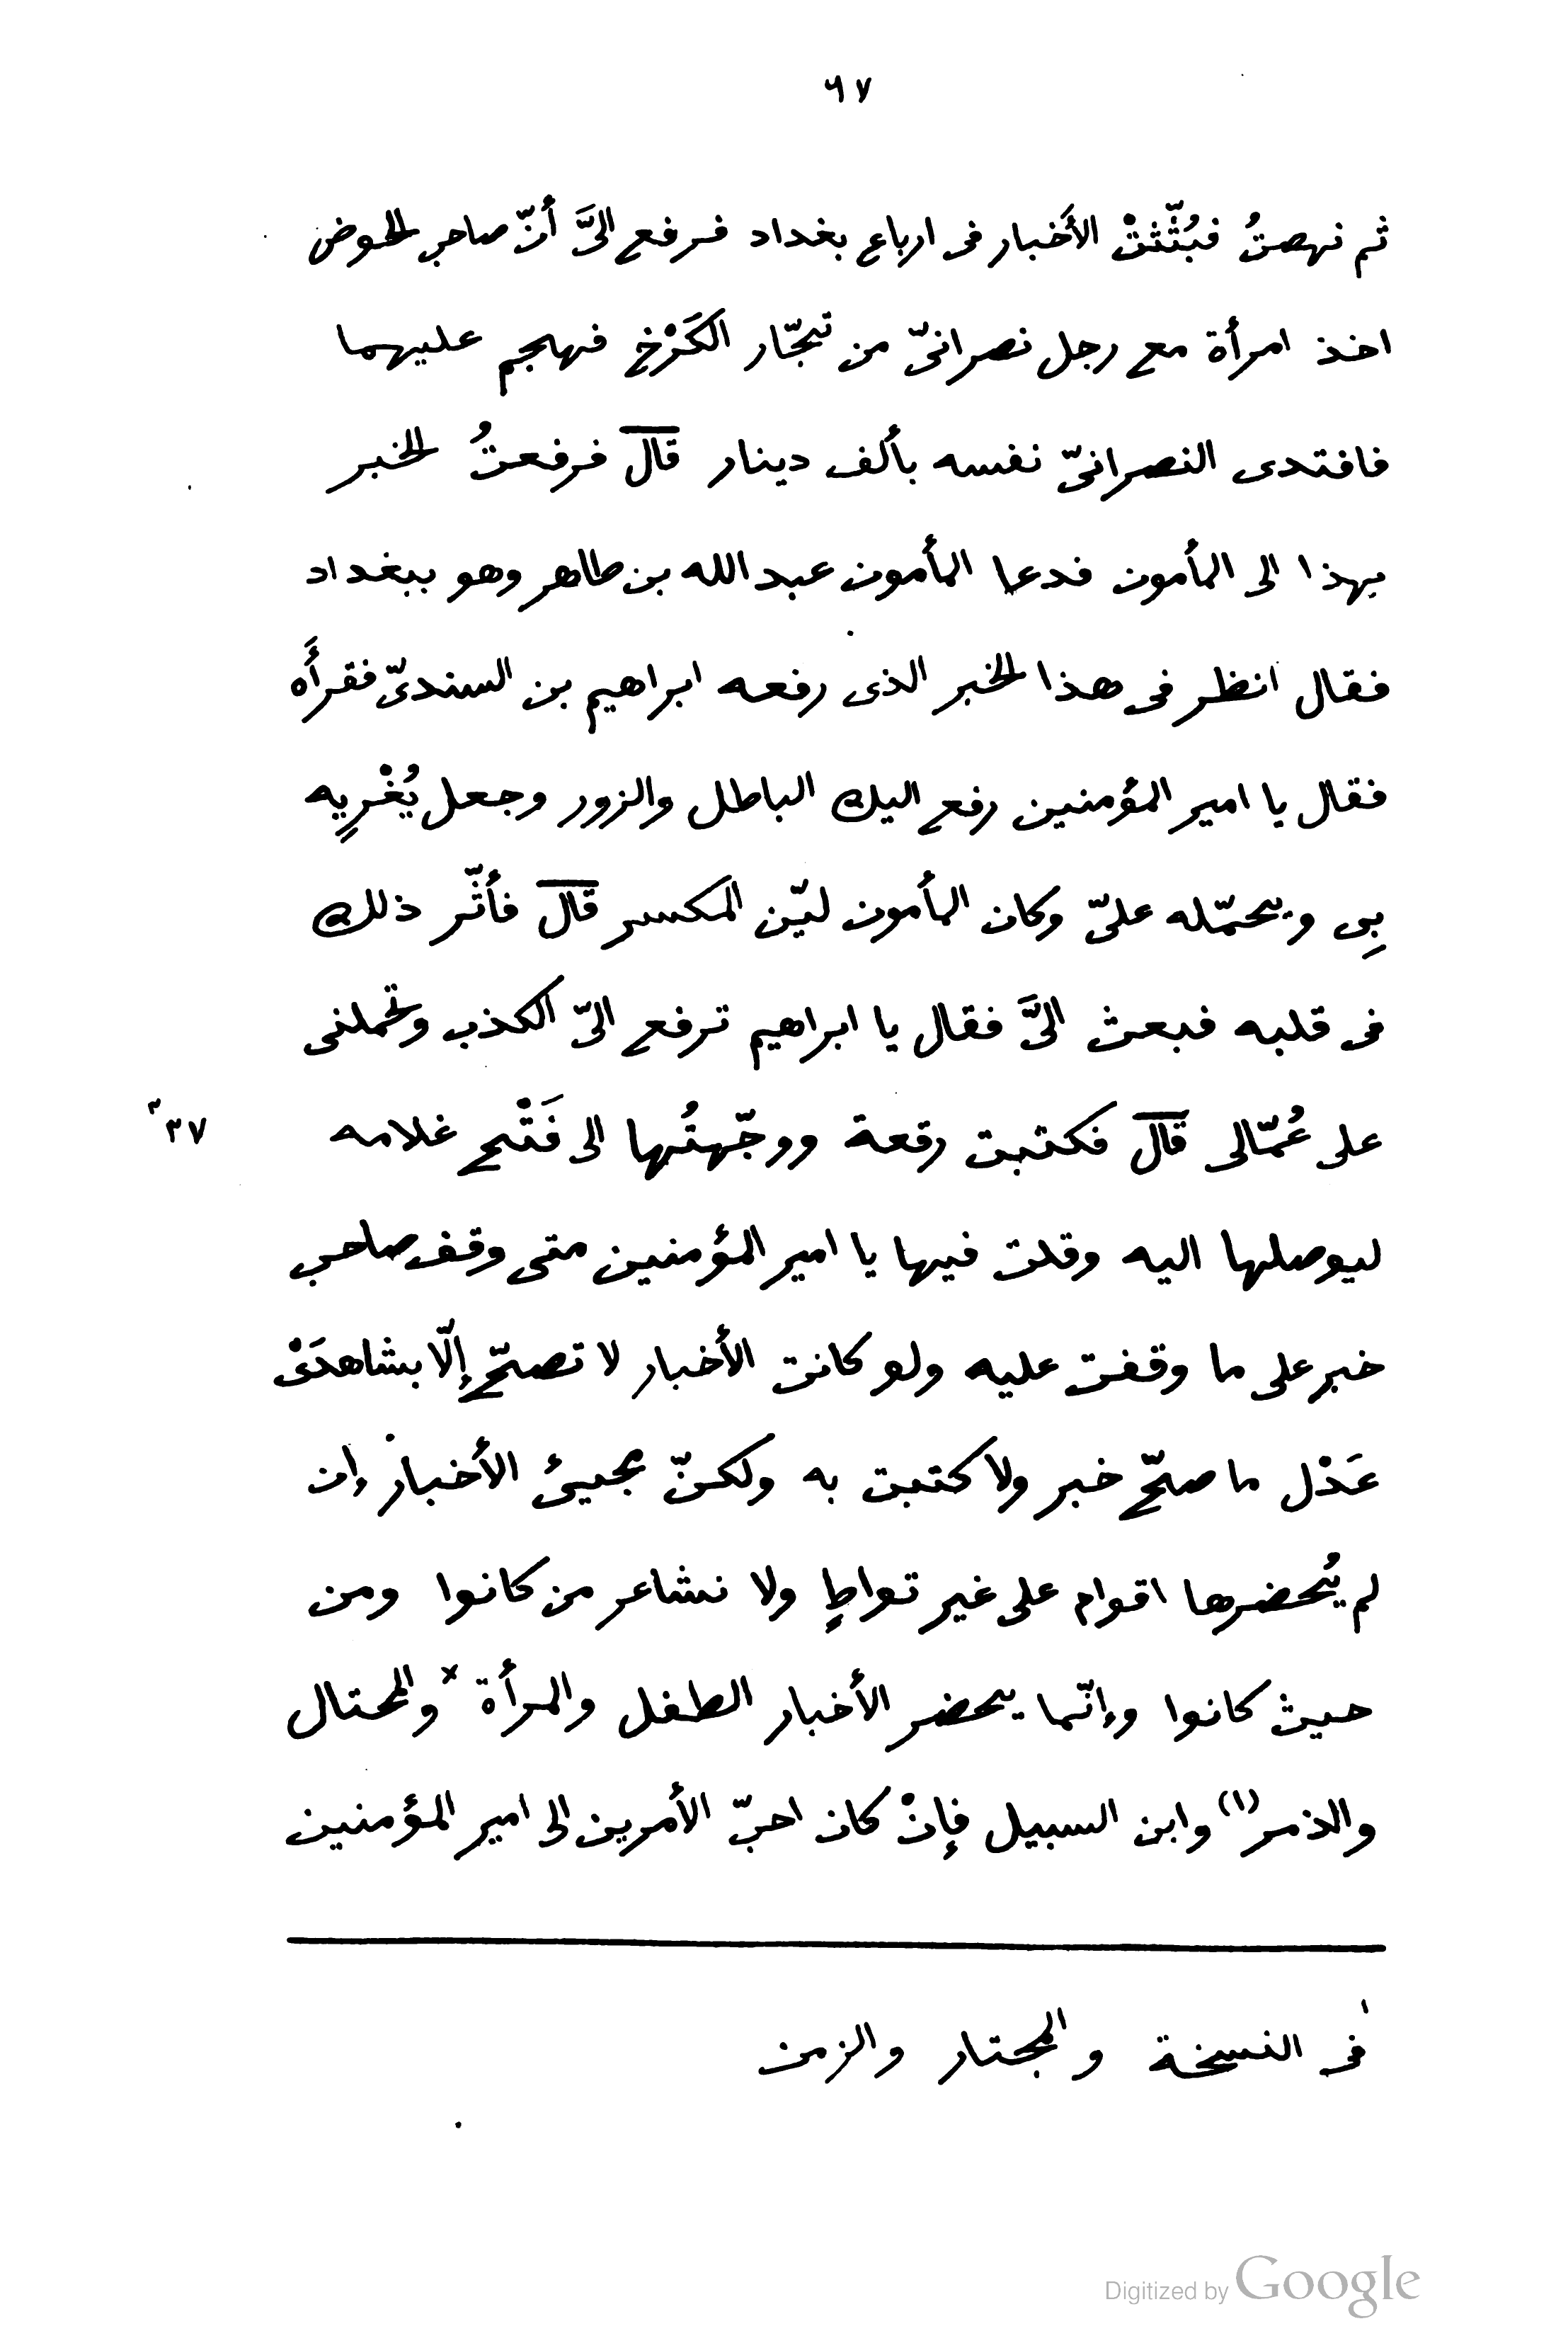 ٦٧
ثم نهضتُ فبُثّثتْ الأَخبار فى ارباع بغداد فرفع الىَّ أنّ صاحب الحوض
اخذ امرأة مع رجل نصرانىّ من تجّار الكَرْخ فهجم عليهما
فافتدى النصرانىّ نفسه بألف دينار قال فرفعتُ الخبر
بهذا الى المأمون فدعا المأمون عبد الله بن طاهر وهو ببغداد
فقال انظر فى هذا الخبر الذى رفعه ابراهيم بن السندىّ فقرأَه
فقال يا امير المؤمنين رفع اليك الباطل والزور وجعل يُغْرِيه
بِى ويحمّله علىّ وكان المأمون ليّن المكسر قال فأثّر ذلك
فى قلبه فبعث الىَّ فقال يا ابراهيم ترفع الىّ الكذب وتحملنى
على عُمّالى قال فكتبت رقعة ووجّهتُها الى فَتْح غلامه ٣٧
ليوصلها اليه وقلت فيها يا امير المؤمنين متى وقف صاحب
خبر على ما وقفت عليه ولو كانت الأخبار لا تصحّ إلّا بشاهدَىْ
عَدْل ما صحّ خبر ولا كتبت به ولكنّ مجيئ الأخبار إن
لم يُحضرها اقوام على غير تواطٍ ولا نشاعر من كانوا ومن
حيث كانوا وإنّما يحضر الأخبار الطفل والمرأة × والمحتال
والذمر (١) وابن السبيل فإنْ كان احبّ الأمرين الى امير المؤمنين
١ فى النسخة والمجتار والزمن
Digitized by Google